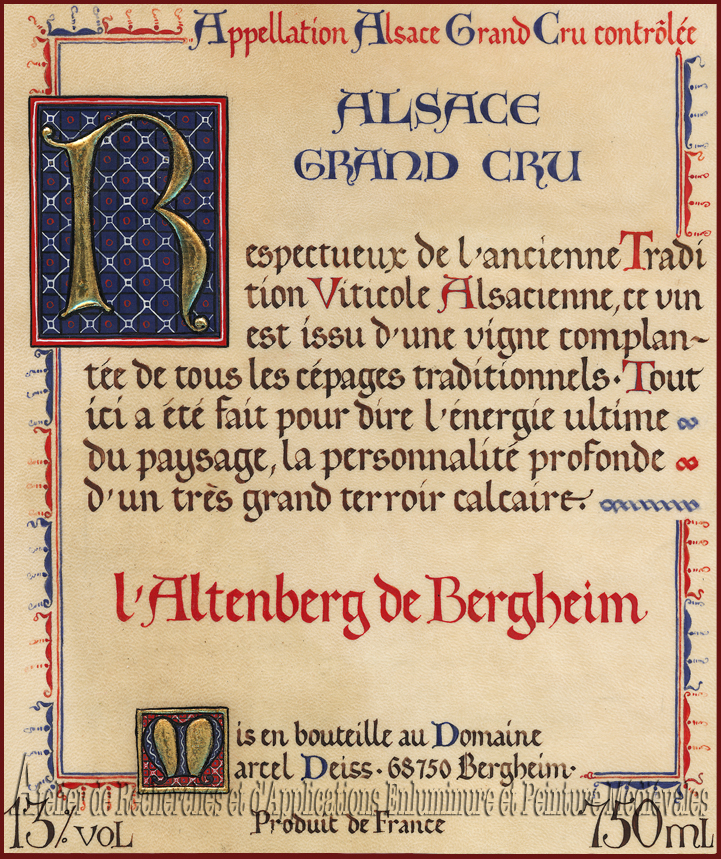 Appellation Alsace Grand Cru contrôlée
ALSACE
GRAND CRU
Respectueux de l'ancienne Tradi
tion Viticole Alsacienne, ce vin
est issu d'une vigne complan~
tée de tous les cépages traditionnels. Tout
ici a été fait pour dire l'énergie ultime
du paysage, la personnalité profonde
d'un très grand terroir calcaire.
l'Altenberg de Bergheim
Mis en bouteille au Domaine
arcel Deiss. 68750 Bergheim.
Atelier de Recherches et d'Applications Enluminure et Peinture Médiévales
13% VOL
Produit de France
750 mL